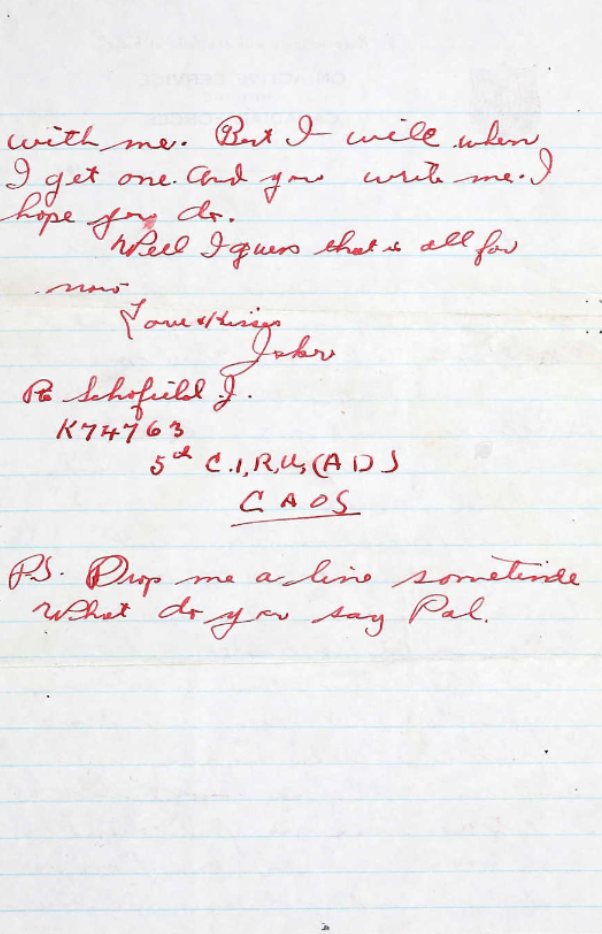 with me. But I will when
I get one. And you write me. I
hope you do.
Well I guess that is all for
now
Love & Kisses
Pte Schofield J.
K74763
5th C.I.R.U, (A D)
C A O S
PS. Drop me a line sometinde
What do you say Pal.